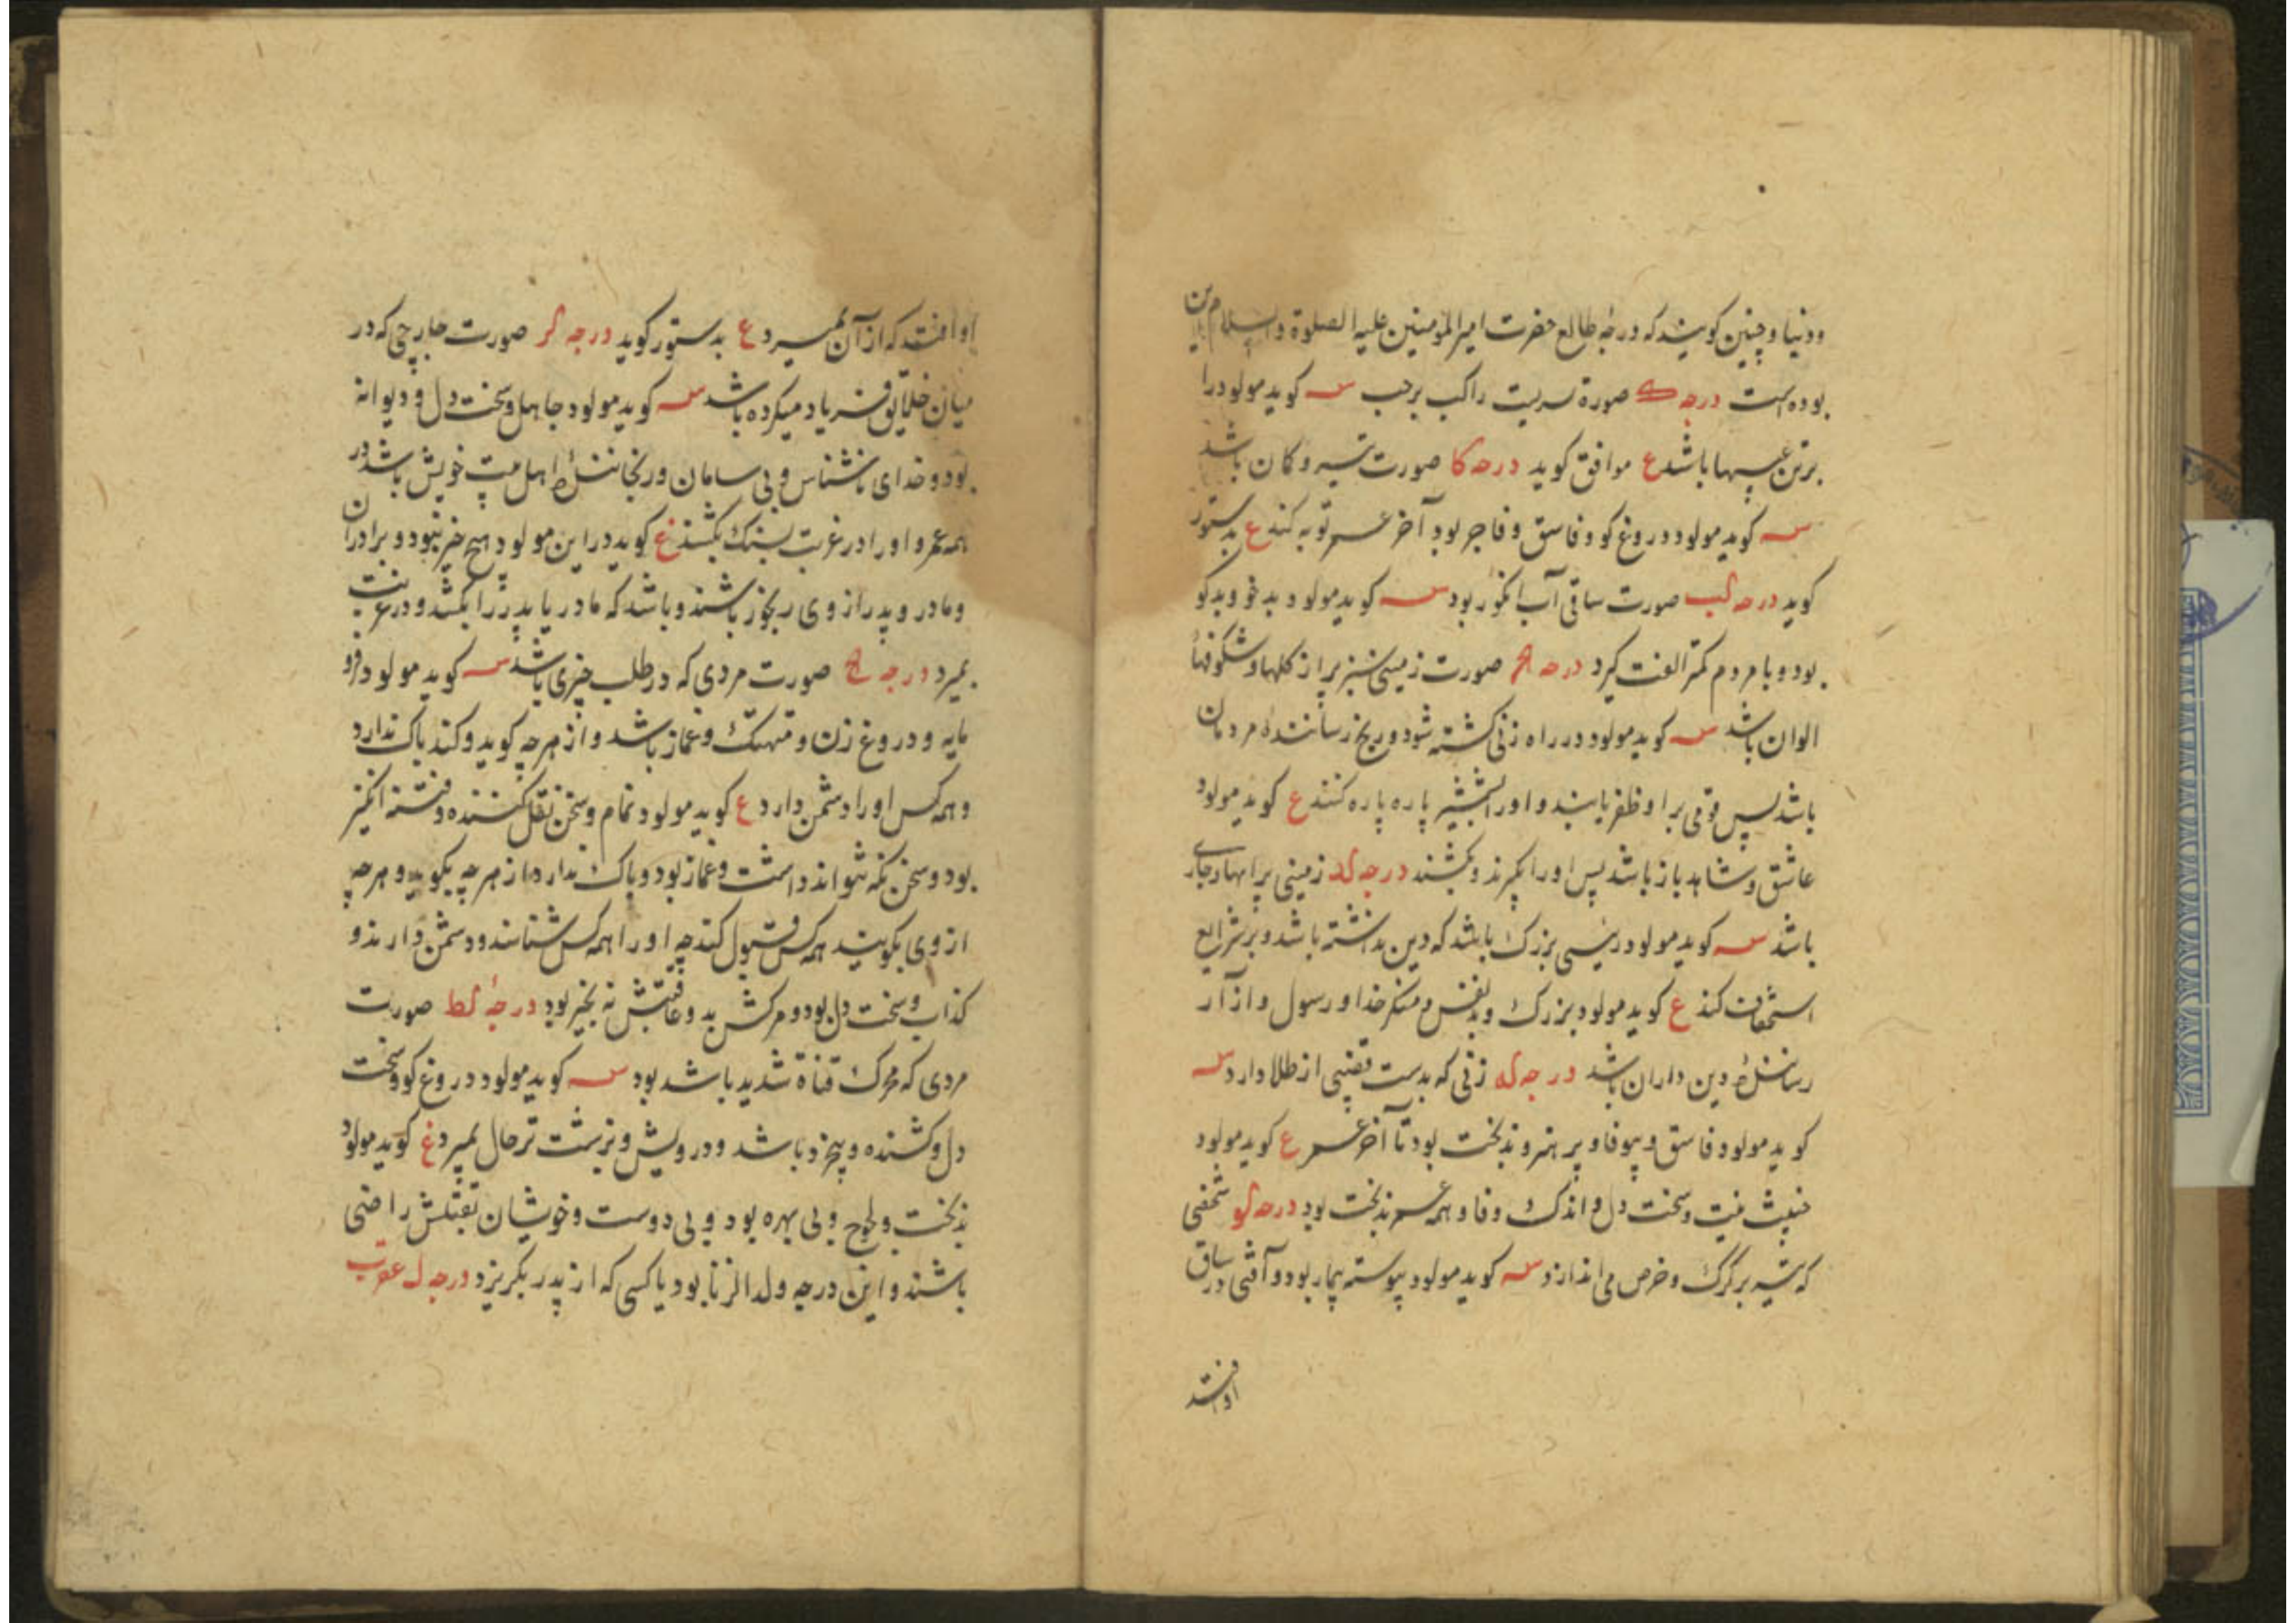 ودنیا و چنین کویند که درجهٔ طالع حضرت امیرالمؤمنین علیه الصلوة والسلام این
بوده است درجه ک صورة سریت راکب برجب س کوید مولود را
برتن عیبها باشد ع موافق کوید درجه کا صورت تیر و کمان باشد
س کوید مولود دروغ کو و فاسق و فاجر بود آخر عمر توبه کند ع بدستور
کوید درجه کب صورت ساقی آب انکور بود س کوید مولود بدخو و بدکو
بود و با مردم کمتر الفت کیرد درجه کج صورت زمینی سبز پر از کلها و شکوفهاء
الوان باشد س کوید مولود در راه زنی کشته شود و رنج رسانندهٔ مردمان
باشد پس قومی بر او ظفر یابند و او را بشمشیر پاره پاره کنند ع کوید مولود
عاشق و شاهد باز باشد پس او را بکیرند و بکشند درجه کد زمینی پر ابها و جاری
باشد س کوید مولود رئیسی بزرک باشد که دین نداشته باشد و بر شرایع
استخفاف کند ع کوید مولود بزرک و بدنفس و منکر خدا و رسول و از آزار
رسانندهٔ دین داران باشد درجه که زنی که بدست قضیبی از طلا دارد س
کوید مولود فاسق و بیوفا و پر هنر و بدبخت بود تا آخر عمر ع کوید مولود
خبیث نیت و سخت دل و اندک وفا و همه عمر بدبخت بود درجه کو شخصی
که تیر بر کرک و خرس می اندازد س کوید مولود پیوسته بیمار بود و آفتی در ساق
او افتد
او افتد که از آن بمیرد ع بدستور کوید درجه کز صورت جارچی که در
میان خلایق فریاد میکرده باشد س کوید مولود جاهل و سخت دل و دیوانه
بود و خدای ناشناس و بی سامان و رنجانندهٔ اهل بیت خویش باشد در
همه عمر و او را در غربت بسنک بکشند ع کوید در این مولود هیچ خیر نبود و برادران
و مادر و پدر از وی رنجور باشند و باشد که مادر یا پدر را بکشد و در غربت
بمیرد درجه کح صورت مردی که در طلب چیزی باشد س کوید مولود فرو
مایه و دروغ زن و متهتک و غماز باشد و از هر چه کوید و کند باک ندارد
و همه کس او را دشمن دارد ع کوید مولود نمام و سخن نقل کننده و فتنه انکیز
بود و سخن نکه نتواند داشت و غماز بود و باک ندارد از هر چه بکوید و هر چه
از وی بکویند همه کس قبول کند چه او را همه کس شناسند و دشمن دارند و
کذاب و سخت دل بود و مرکش بد و عاقبتش نه بخیر بود درجهٔ کط صورت
مردی که محرک قناة شدید باشد بود س کوید مولود دروغ کو و سخت
دل و کشنده و بیخرد باشد و درویش و بزشت تر حال بمیرد ع کوید مولود
بدبخت و لجوج و بی بهره بود و بی دوست و خویشان بقتلش راضی
باشند و این درجه ولد الزنا بود یا کسی که از پدر بکریزد درجه ل عقرب